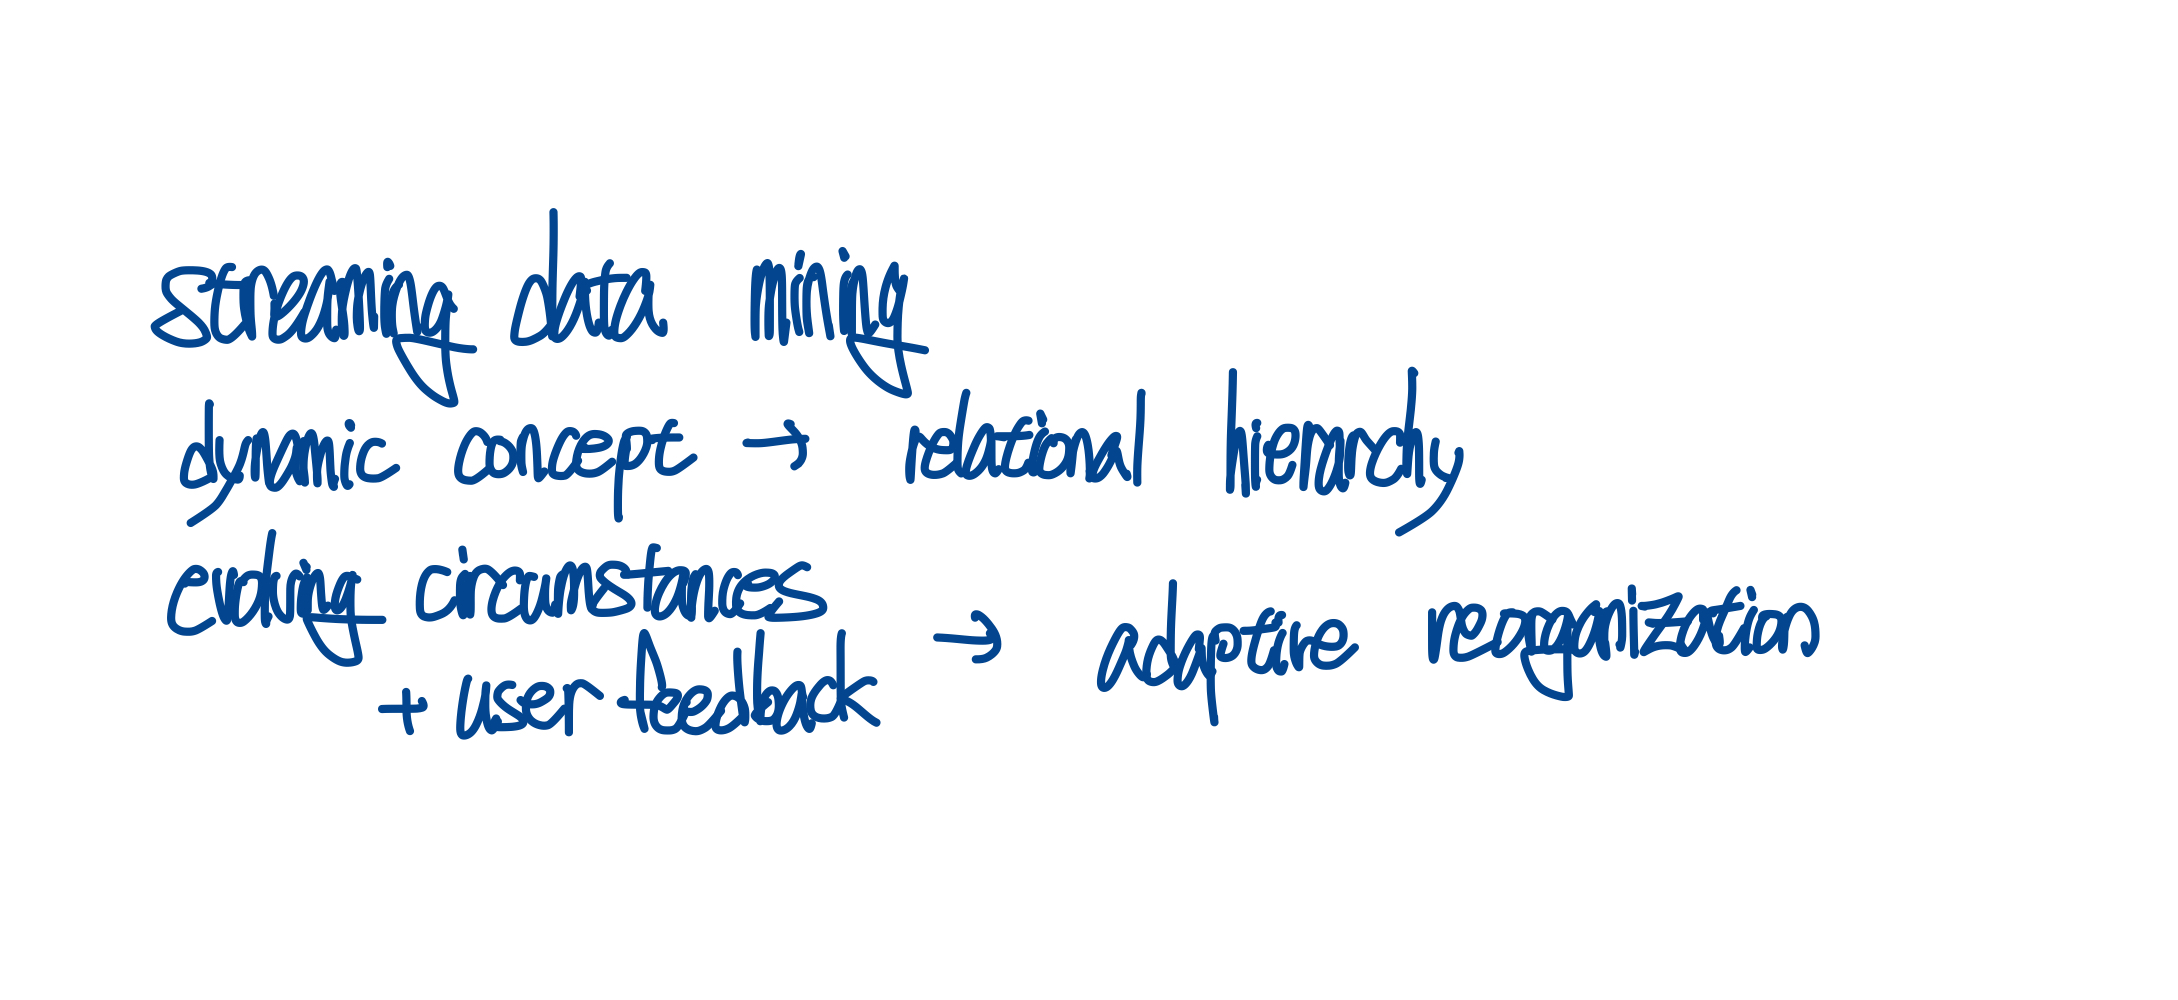 streaming data mining
dynamic concept → relational hierarchy
evolving circumstances
+ user feedback → adaptive reorganization